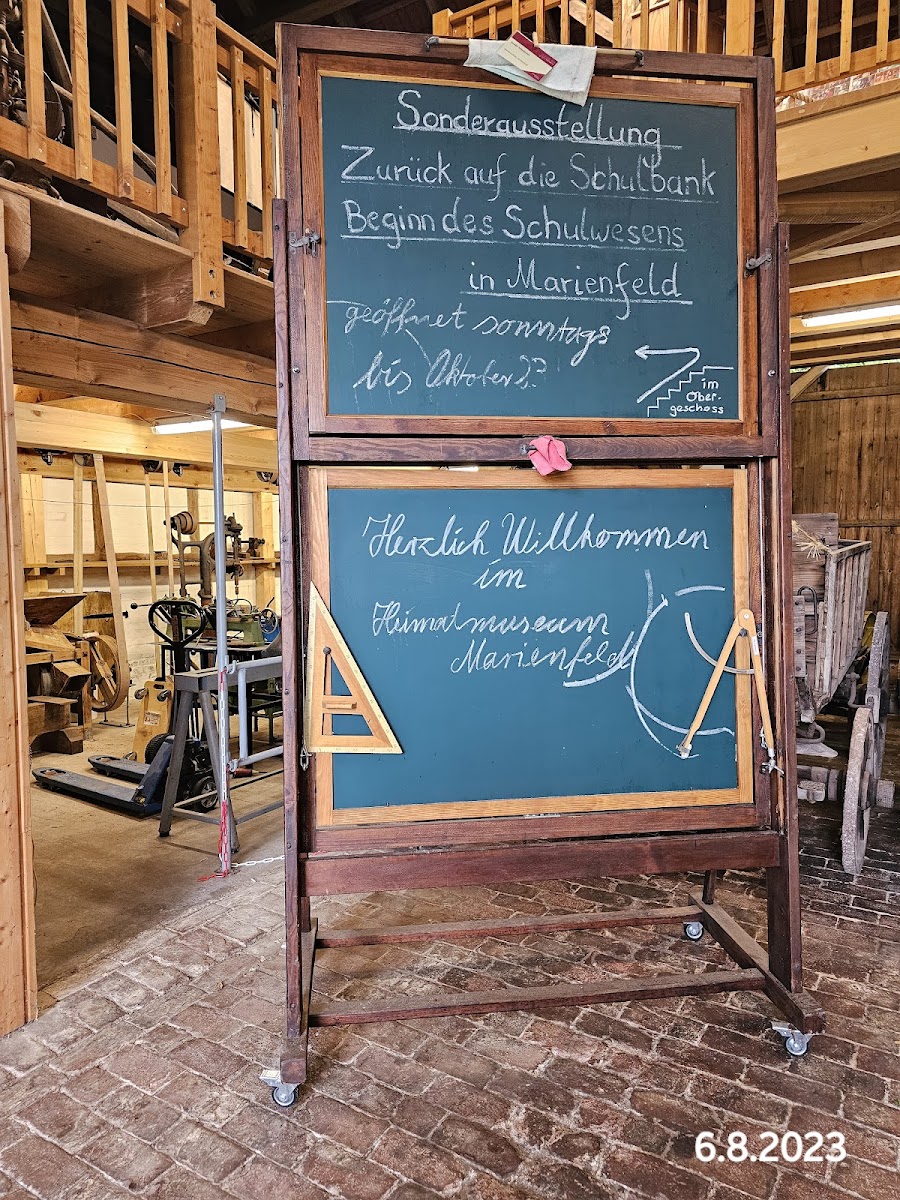 Sonderausstellung
Zurück auf die Schulbank
Beginn des Schulwesens
in Marienfeld
geöffnet sonntags
bis Oktober 23
im
Ober-
geschoss
Herzlich Willkommen
im
Heimatmuseum
Marienfeld
6.8.2023